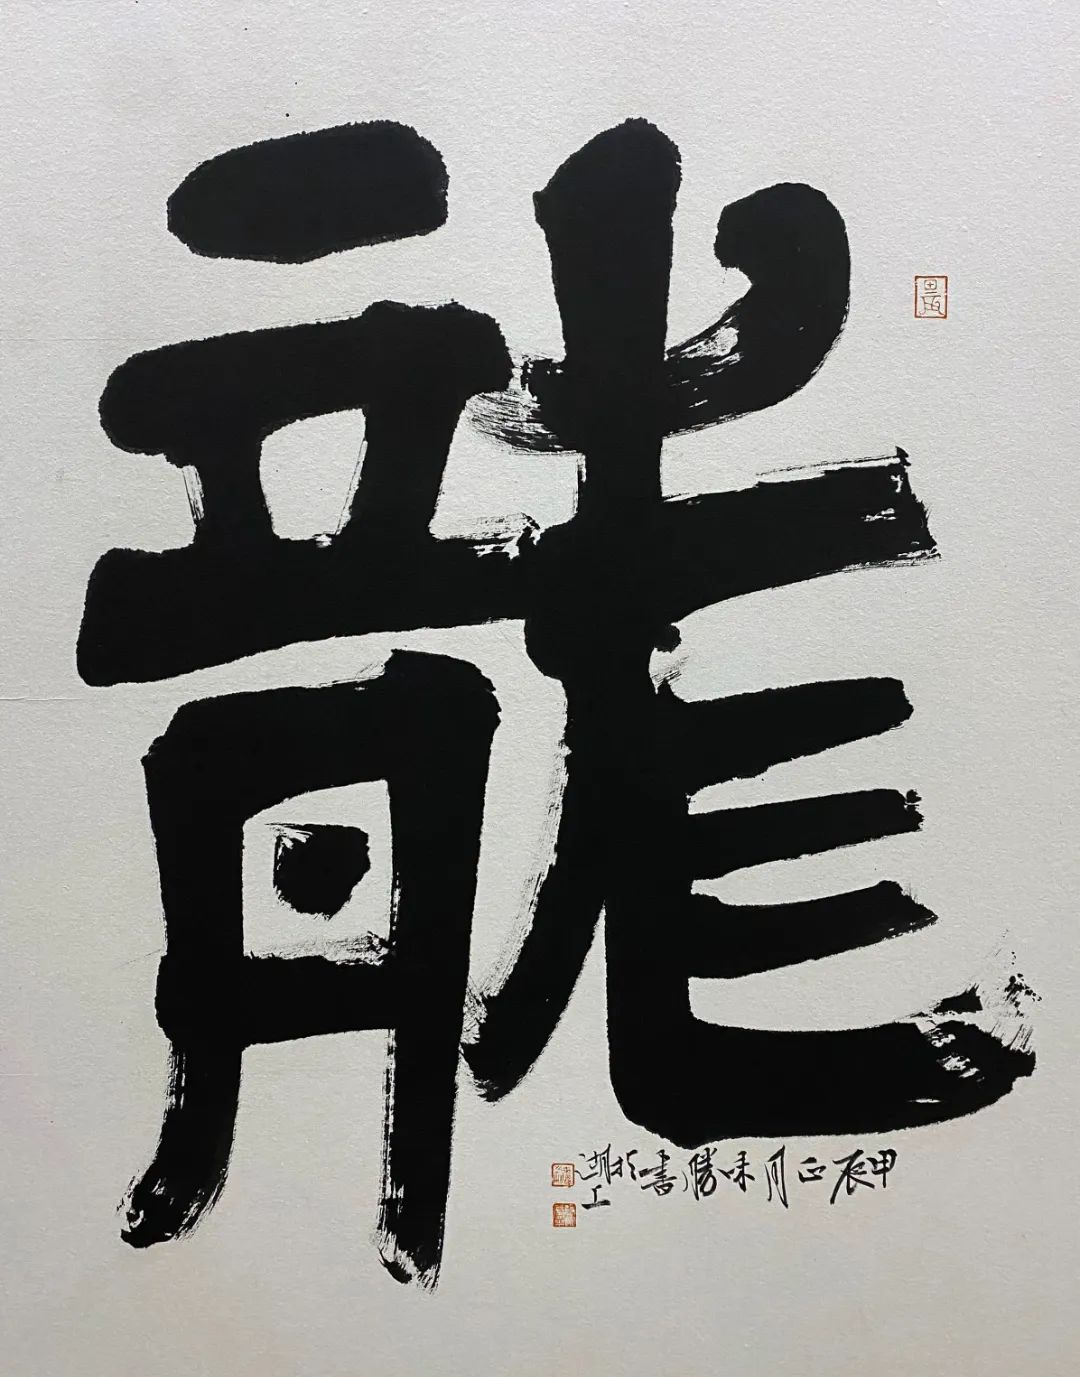 龍
甲辰正月味勝書於湖上